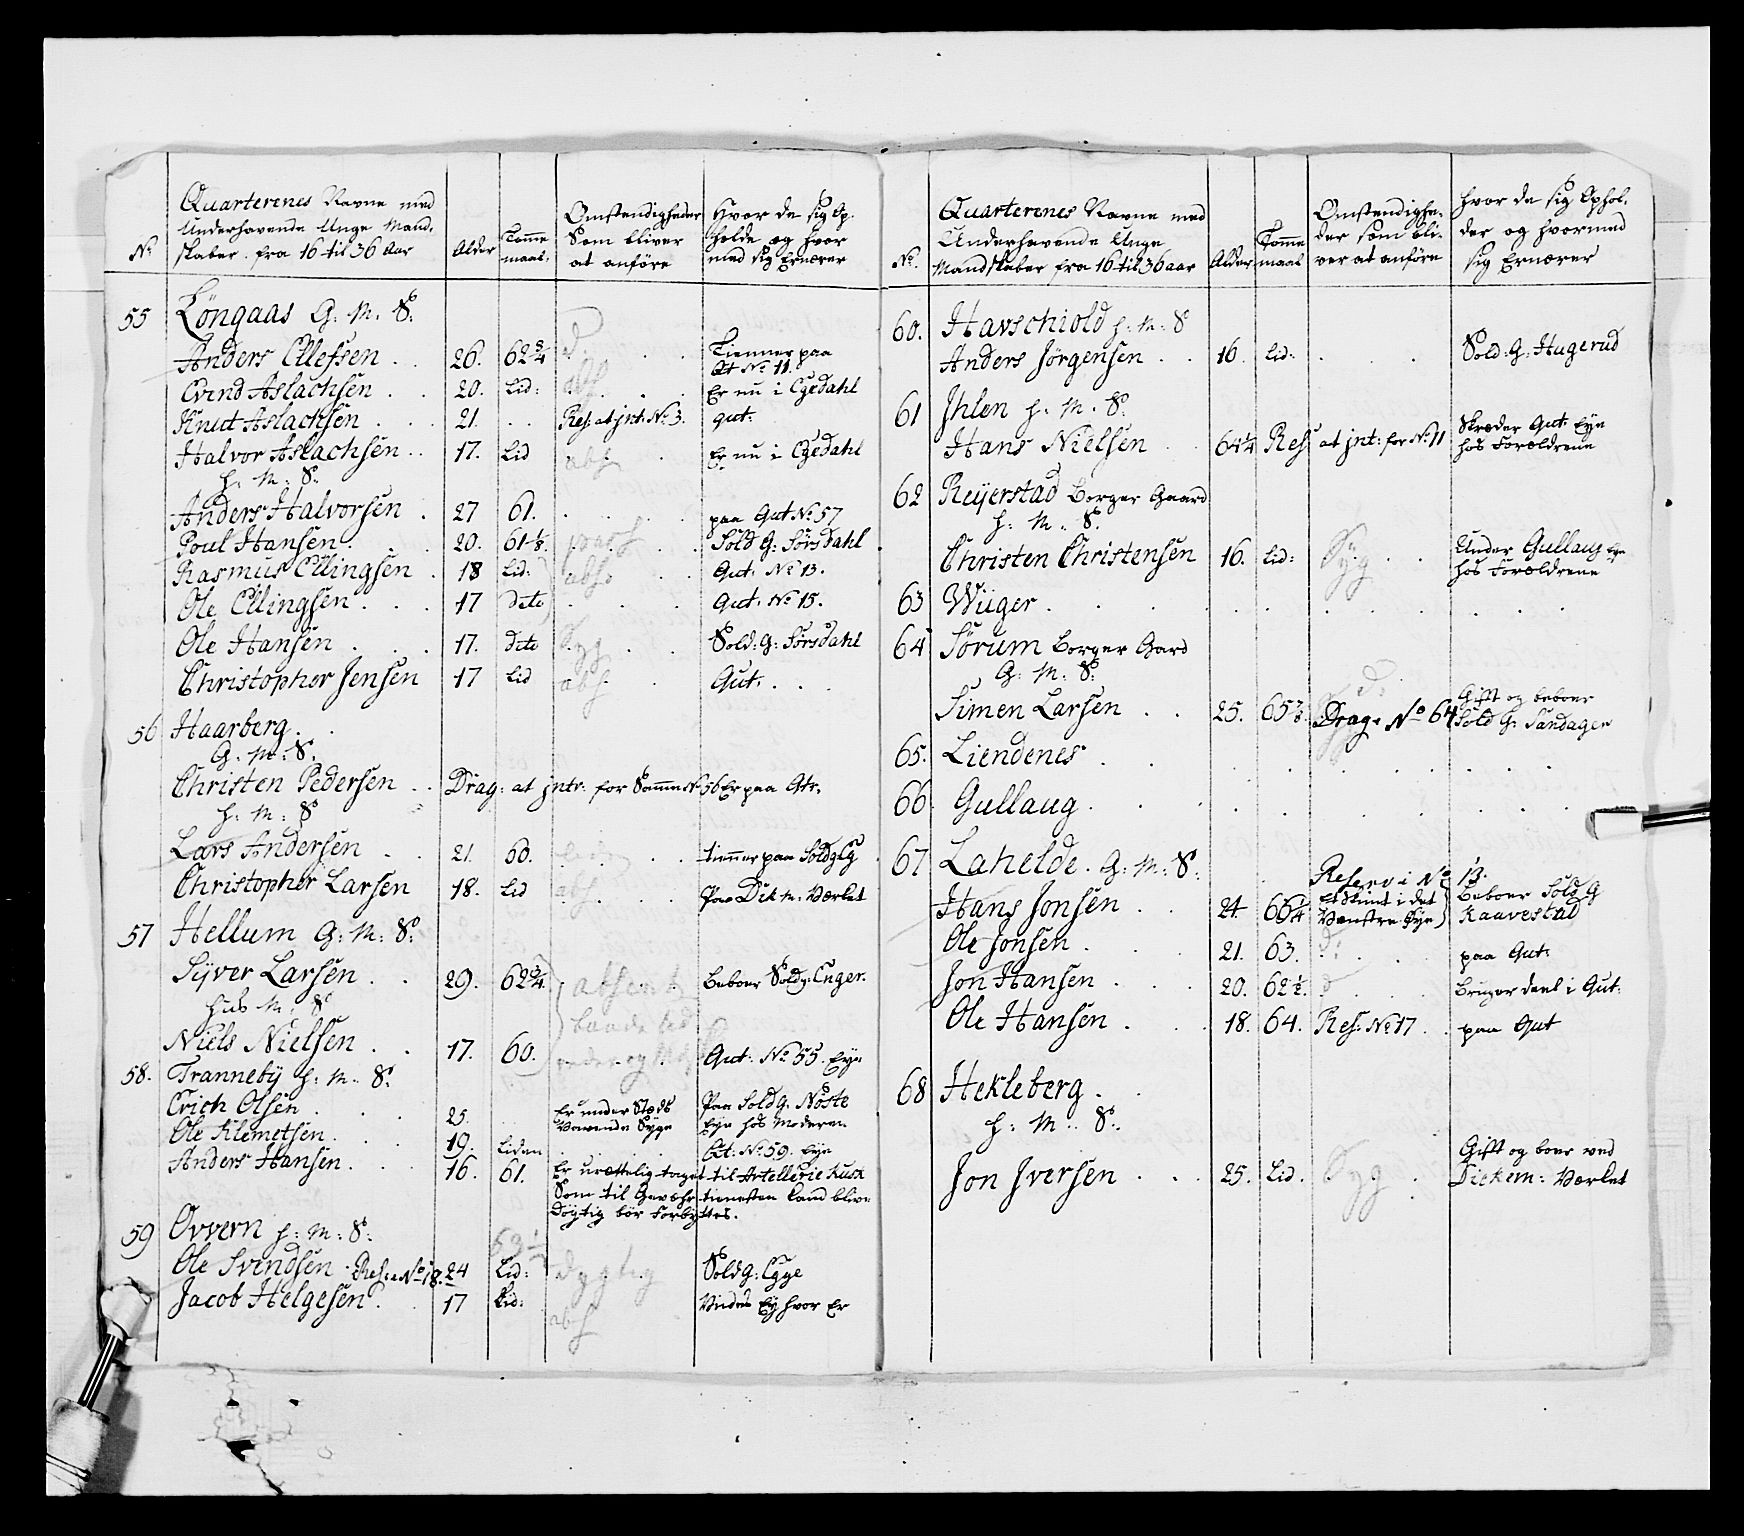 No
Quarterenes Navne med
Underhavende Unge Mand,
skaber. fra 16 til 36 Aar
Alder
Tomme
maal.
Omstendigheder
Som bliver
at anføre
Hvor de sig Op-
holde og hvor
med sig Ernærer
55 Löngaas G: M: S:
Anders Ellefsen . . 26. 62 3/4 d. . . Tienner paa
Gt No 11.
Evind Aslachsen . . 20. Lid: abs . . Er nu i Egedahl
Knud Aslachsen . . . 21. . . Res: at jnt: No 3. gut:
Halvor Aslachsen . . 17. Lid abs . Er nu i Egedahl
H: M: S:
Anders Halvorsen . 27 61. . . . paa Gut No 57
Poul Hansen . . 20. 61 1/8. . . Sold G: Sørsdahl
Rasmus Ellingsen . 18 Lid: abs: . . Gut: No 13.
Ole Ellingsen . . . 17 Dito . . . Gut: No 15.
Ole Hansen . . . 17. Dito Syg . . Sold: G: Sørsdahl
Christopher Jensen 17 Lid abs . . Gut. . .
56 Haarberg . .
G: M: S.
Christen Pedersen . . Drag: at jntr: for Samme No 56 Er paa Gtr.
H: M: S
Lars Andersen . . 21. 60. . . . tienner paa Soldg
Christopher Larsen 18. Lid abs . . . Paa Dikm: Værket
57 Hellum G: M: S:
Syver Larsen . . 29. 62 3/4. absent Beboer Soldg: Enger.
Hus M: S
baade
Niels Nielsen . . 17. 60. Gut: No 55. Eye
58. Tranneby H: M: S:
Erich Olsen . . . 25. . Er under Stæds
Værende Syge Paa Sold G. Nöste
Eye hos Moderen.
Ole Klemetsen . . . 19. Liden . . . Gt: No 59. Eye
Anders Hansen . . . 16. 61. Er urættelig taget til Artellerie Kusk
Som til Gevæhr tienesten kand blive
Dygtig bör Forbyttes.
59 Ovvern H: M: S:
Ole Svendsen . Res: No 18. 24 Lid: Dygtig Sold G: Egge
Jacob Helgesen . . 17 Lid: abs Vides Ey hvor Er
No.
Quarterenes Navne med
Underhavende Unge
Mandskaber fra 16 til 36 aar
Alder
Tomme
maal
Omstendighe-
der som bli-
ver at anføre
Hvor de sig Ophol-
der og hvormed
sig Ernærer
60. Havschiold H: M: S
Anders Jörgensen . . 16. Lid: . . . Sold: G: Hugerud
61 Jhlen H: M: S:
Hans Nielsen . . 64 1/4 Res: at jnt: for No 11 Skræder Gut: Eye
hos Forældrene
62 Reyerstad Borger Gaard
H: M: S.
Christen Christensen 16. Lid: Syg . . Under Gullaug Eye
hos Forældrene
63 Wiiger . . . . . . . . . .
64 Sørum Borger Gard
G: M: S:
Simen Larsen . . 25. 65 7/8. d: Drag: No 64 Gift og beboer
Sold G: Sandager
65. Liendenes . . . . . . . . .
66. Gullaug . . . . . . . . .
67 Lahelde. G: M: S:
Reserv: i No 13.
Hans Jonsen . . 24. 65 1/4 er blint i det
Vænstre Øye Beboer Sold G
Kaavestad
Ole Jonsen . . 21. 63. d: . . paa Gut:
Jon Hansen . . . 20. 62 1/2. d . . . Bruger deel i Gut:
Ole Hansen . . . 18. 64. Res: No 17 . . paa Gut
68 Hekleberg . .
H: M: S:
Jon Jversen . . . 25. Lid. Syg . Gift og boer ved
Diekem: Værket